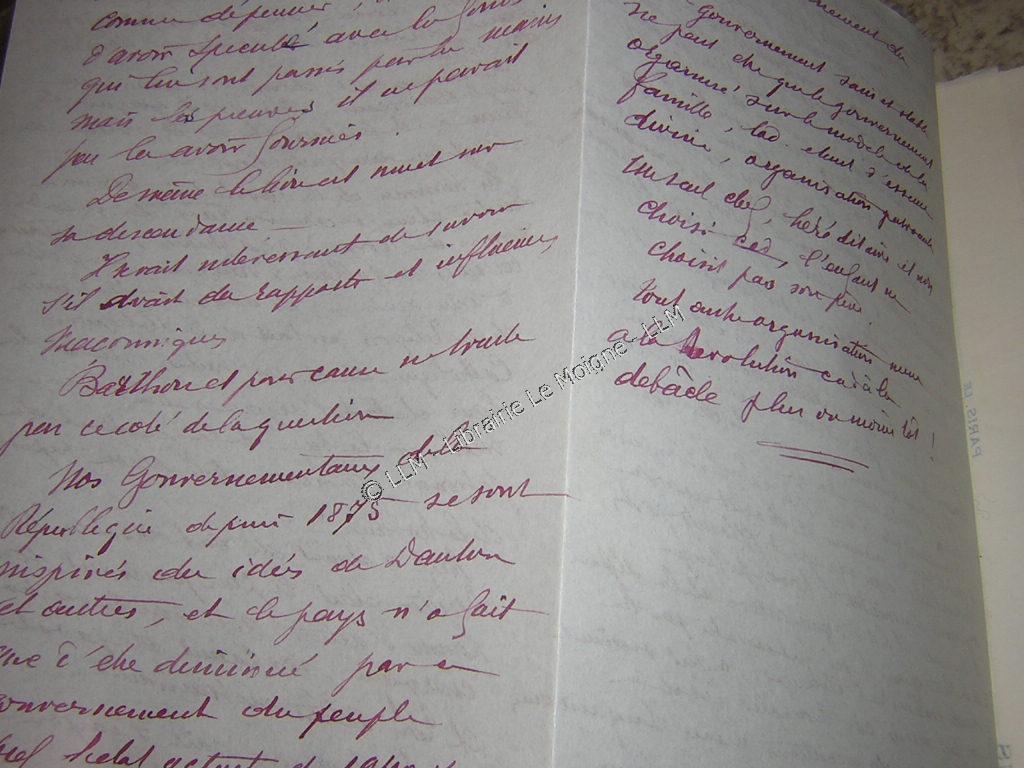 comme dépensier,
d'avoir spéculé avec les fonds
qui lui sont passés par les mains
mais les preuves il ne parait
pas les avoir fournies.
De même le livre est muet sur
sa descendance
Il serait intéressant de savoir
s'il avait des rapports et influences
maconniques
Barthou et pour cause ne traite
pas ce coté de la question
Nos Gouvernementaux de la
République depuis 1875 se sont
inspirés des idées de Danton
et autres, et le pays n'a fait
que d'être diminué par ce
gouvernement du peuple
gouvernement sain et stable
ne peut être que le gouvernement
organisé sur le modèle de la
famille, lad. étant d'essence
divine, organisation puissante
Un seul chef, héréditaire et non
choisi car, l'enfant ne
choisit pas son père.
tout autre organisation mène
a la Revolution cad à la
debâcle plus ou moins tôt !
© LLM - Librairie Le Moigne - LLM
PARIS. IE